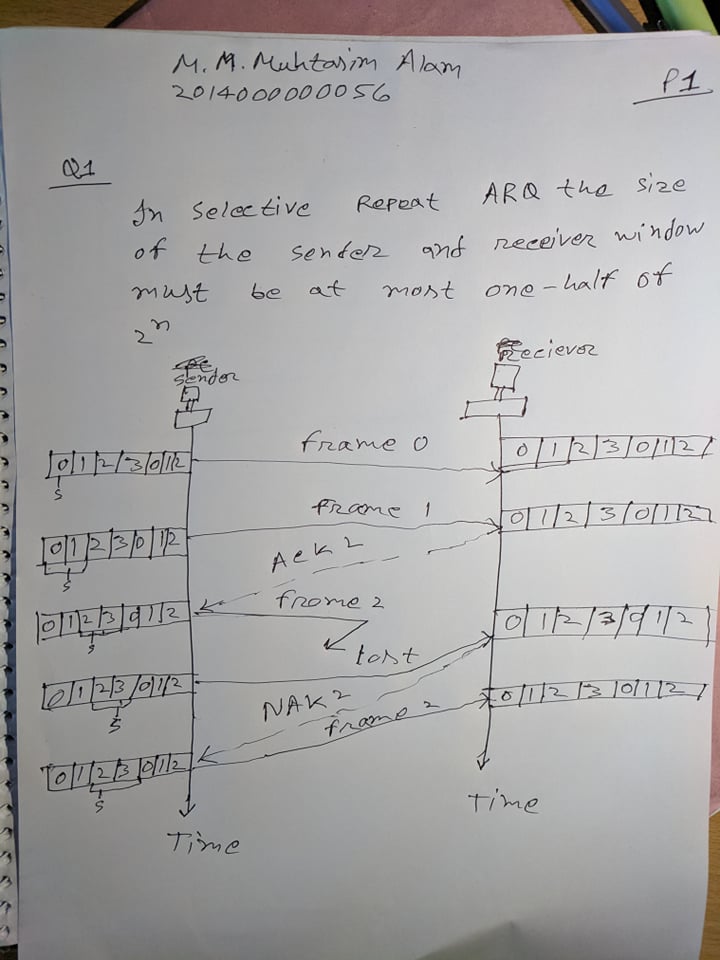 M. M. Muhtasim Alam
2014000000056
P1
Q1
In Selective Repeat ARQ the size
of the sender and receiver window
must be at most one-half of
2ⁿ
Sender
Recievor
0 1 2 3 0 1 2
S
frame 0
0 1 2 3 0 1 2
0 1 2 3 0 1 2
S
frame 1
0 1 2 3 0 1 2
Ack 2
0 1 2 3 0 1 2
S
frome 2
lost
0 1 2 3 0 1 2
0 1 2 3 0 1 2
S
NAK 2
frame 2
0 1 2 3 0 1 2
0 1 2 3 0 1 2
S
Time
Time